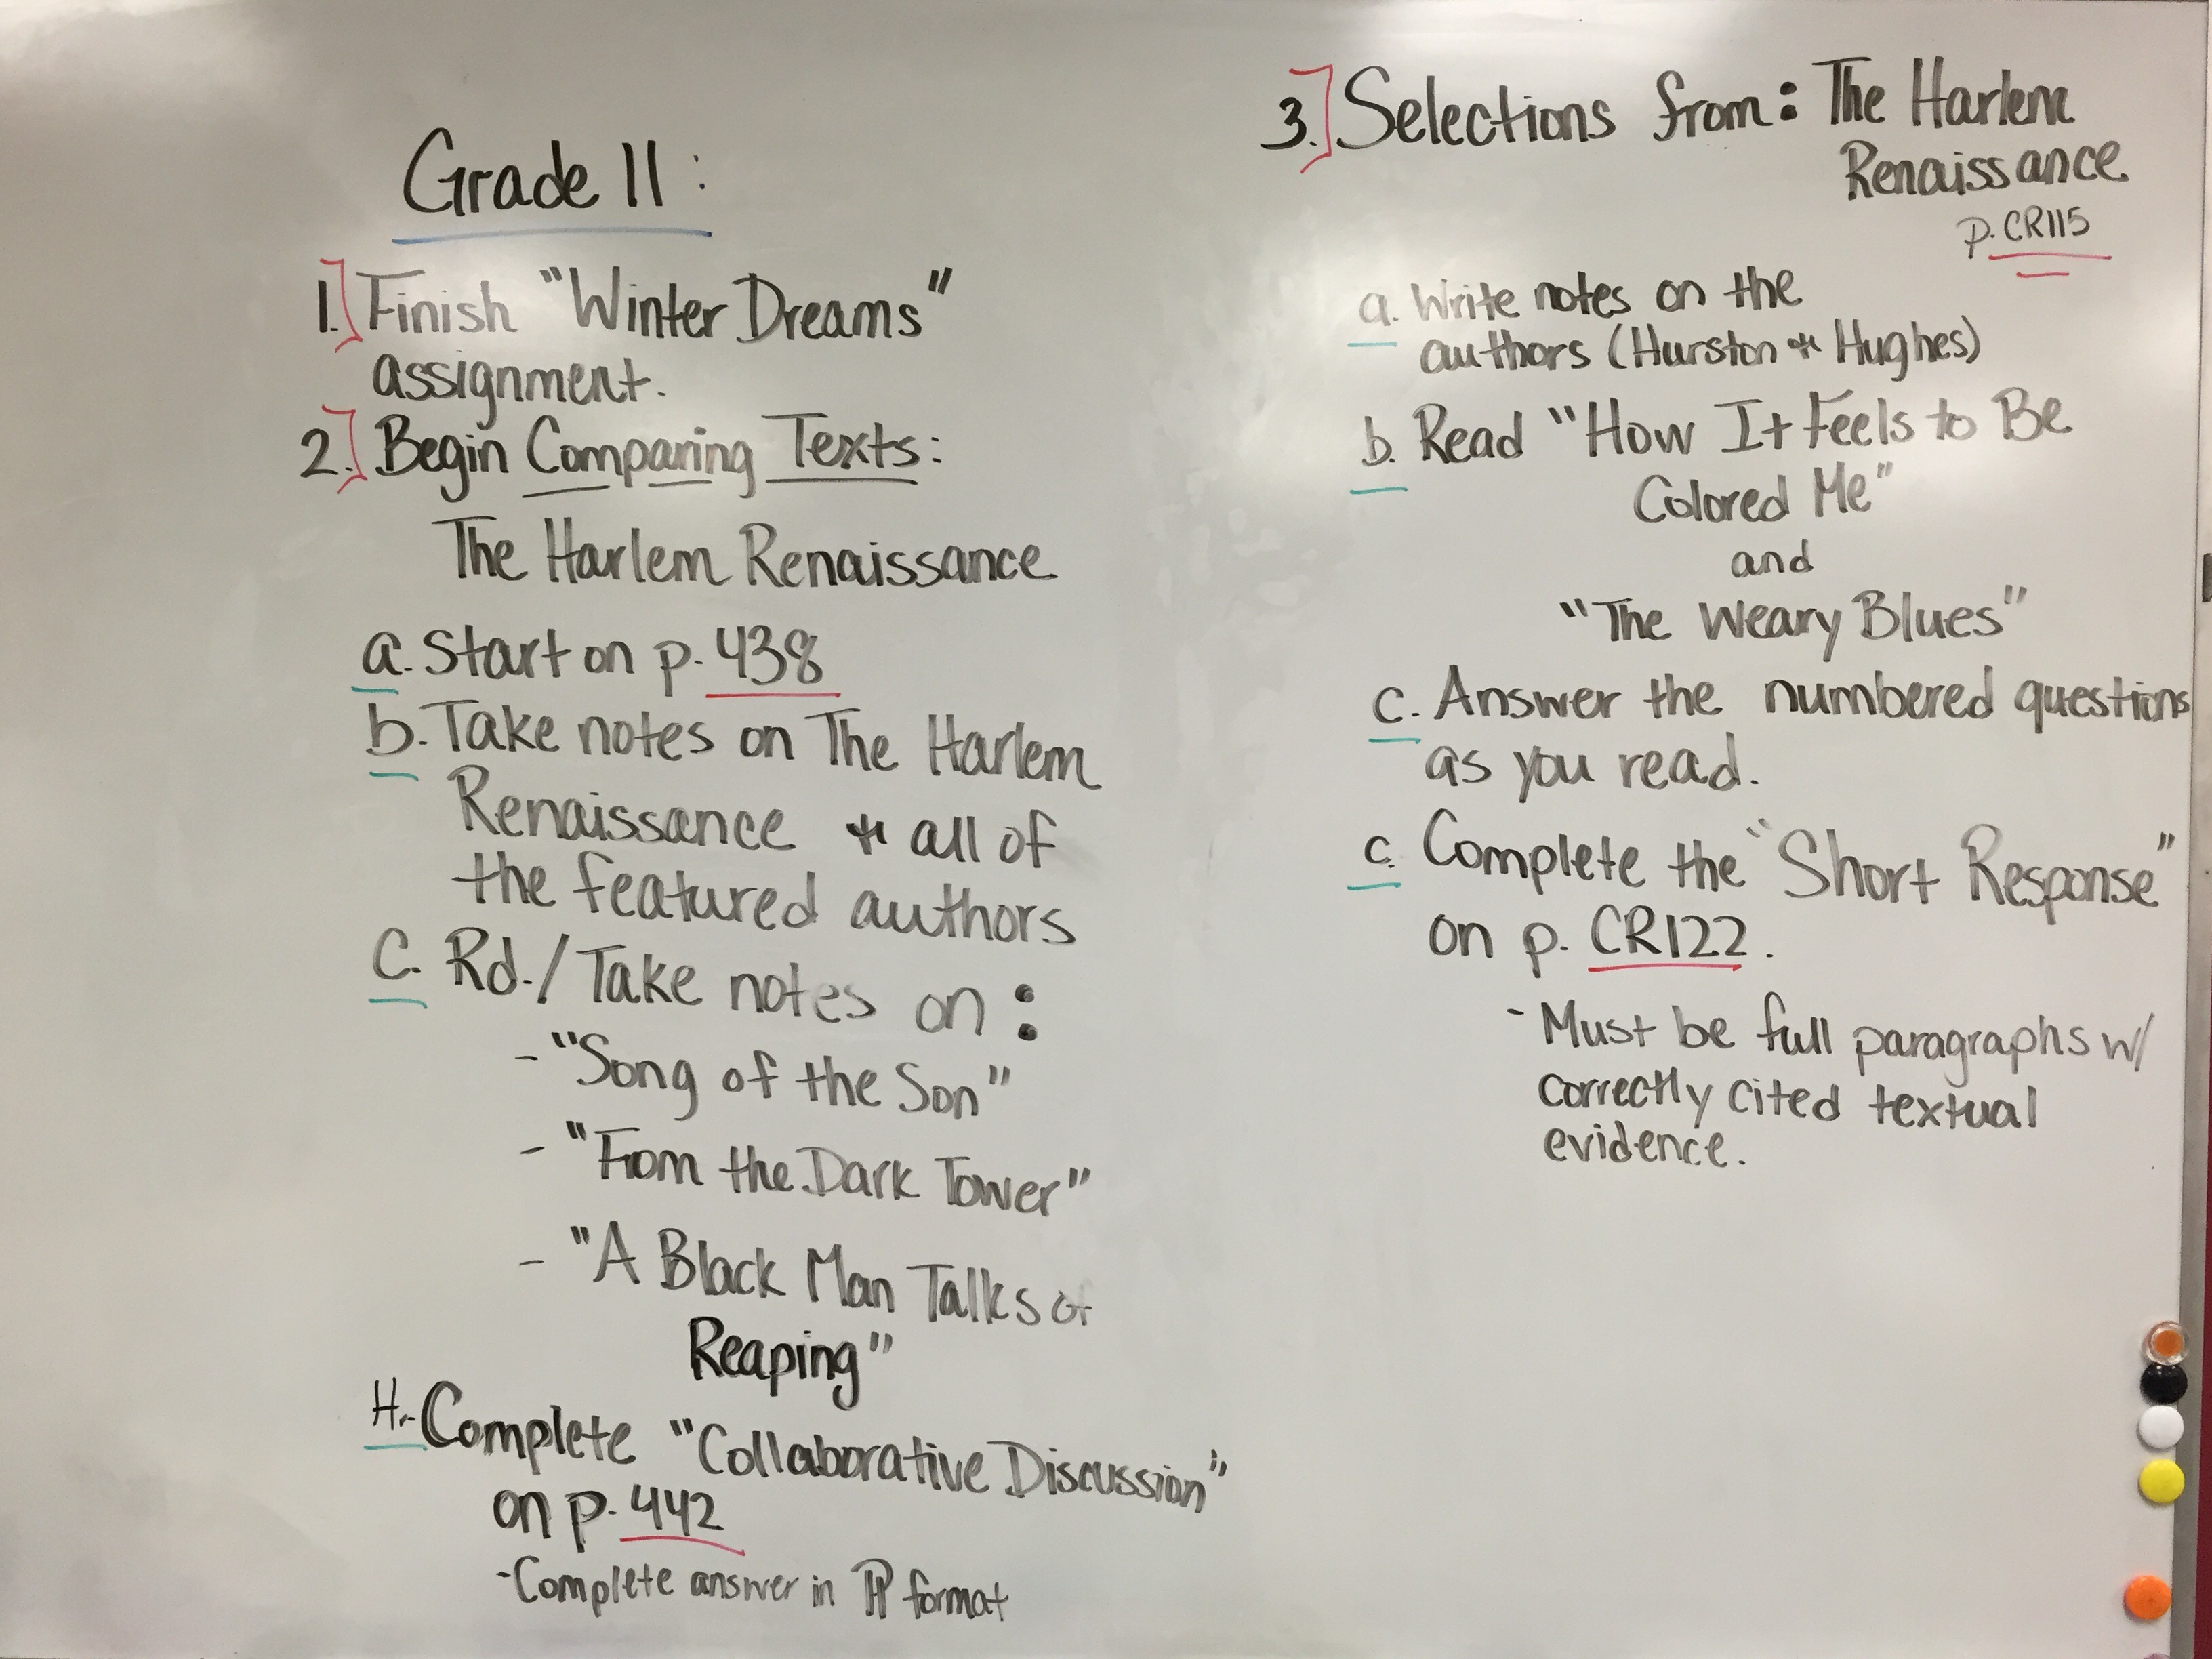 Grade 11:
1. Finish "Winter Dreams"
assignment.
2. Begin Comparing Texts:
The Harlem Renaissance
a. Start on p. 438
b. Take notes on The Harlem
Renaissance + all of
the featured authors
C. Rd./Take notes on:
- "Song of the Son"
- "From the Dark Tower"
- "A Black Man Talks of
Reaping"
H. Complete "Collaborative Discussion"
on p. 442
- Complete answer in ¶ format
3. Selections from: The Harlem
Renaissance
p. CR115
a. Write notes on the
authors (Hurston + Hughes)
b. Read "How It Feels to Be
Colored Me"
and
"The Weary Blues"
c. Answer the numbered questions
as you read.
c. Complete the "Short Response"
on p. CR122.
- Must be full paragraphs w/
correctly cited textual
evidence.